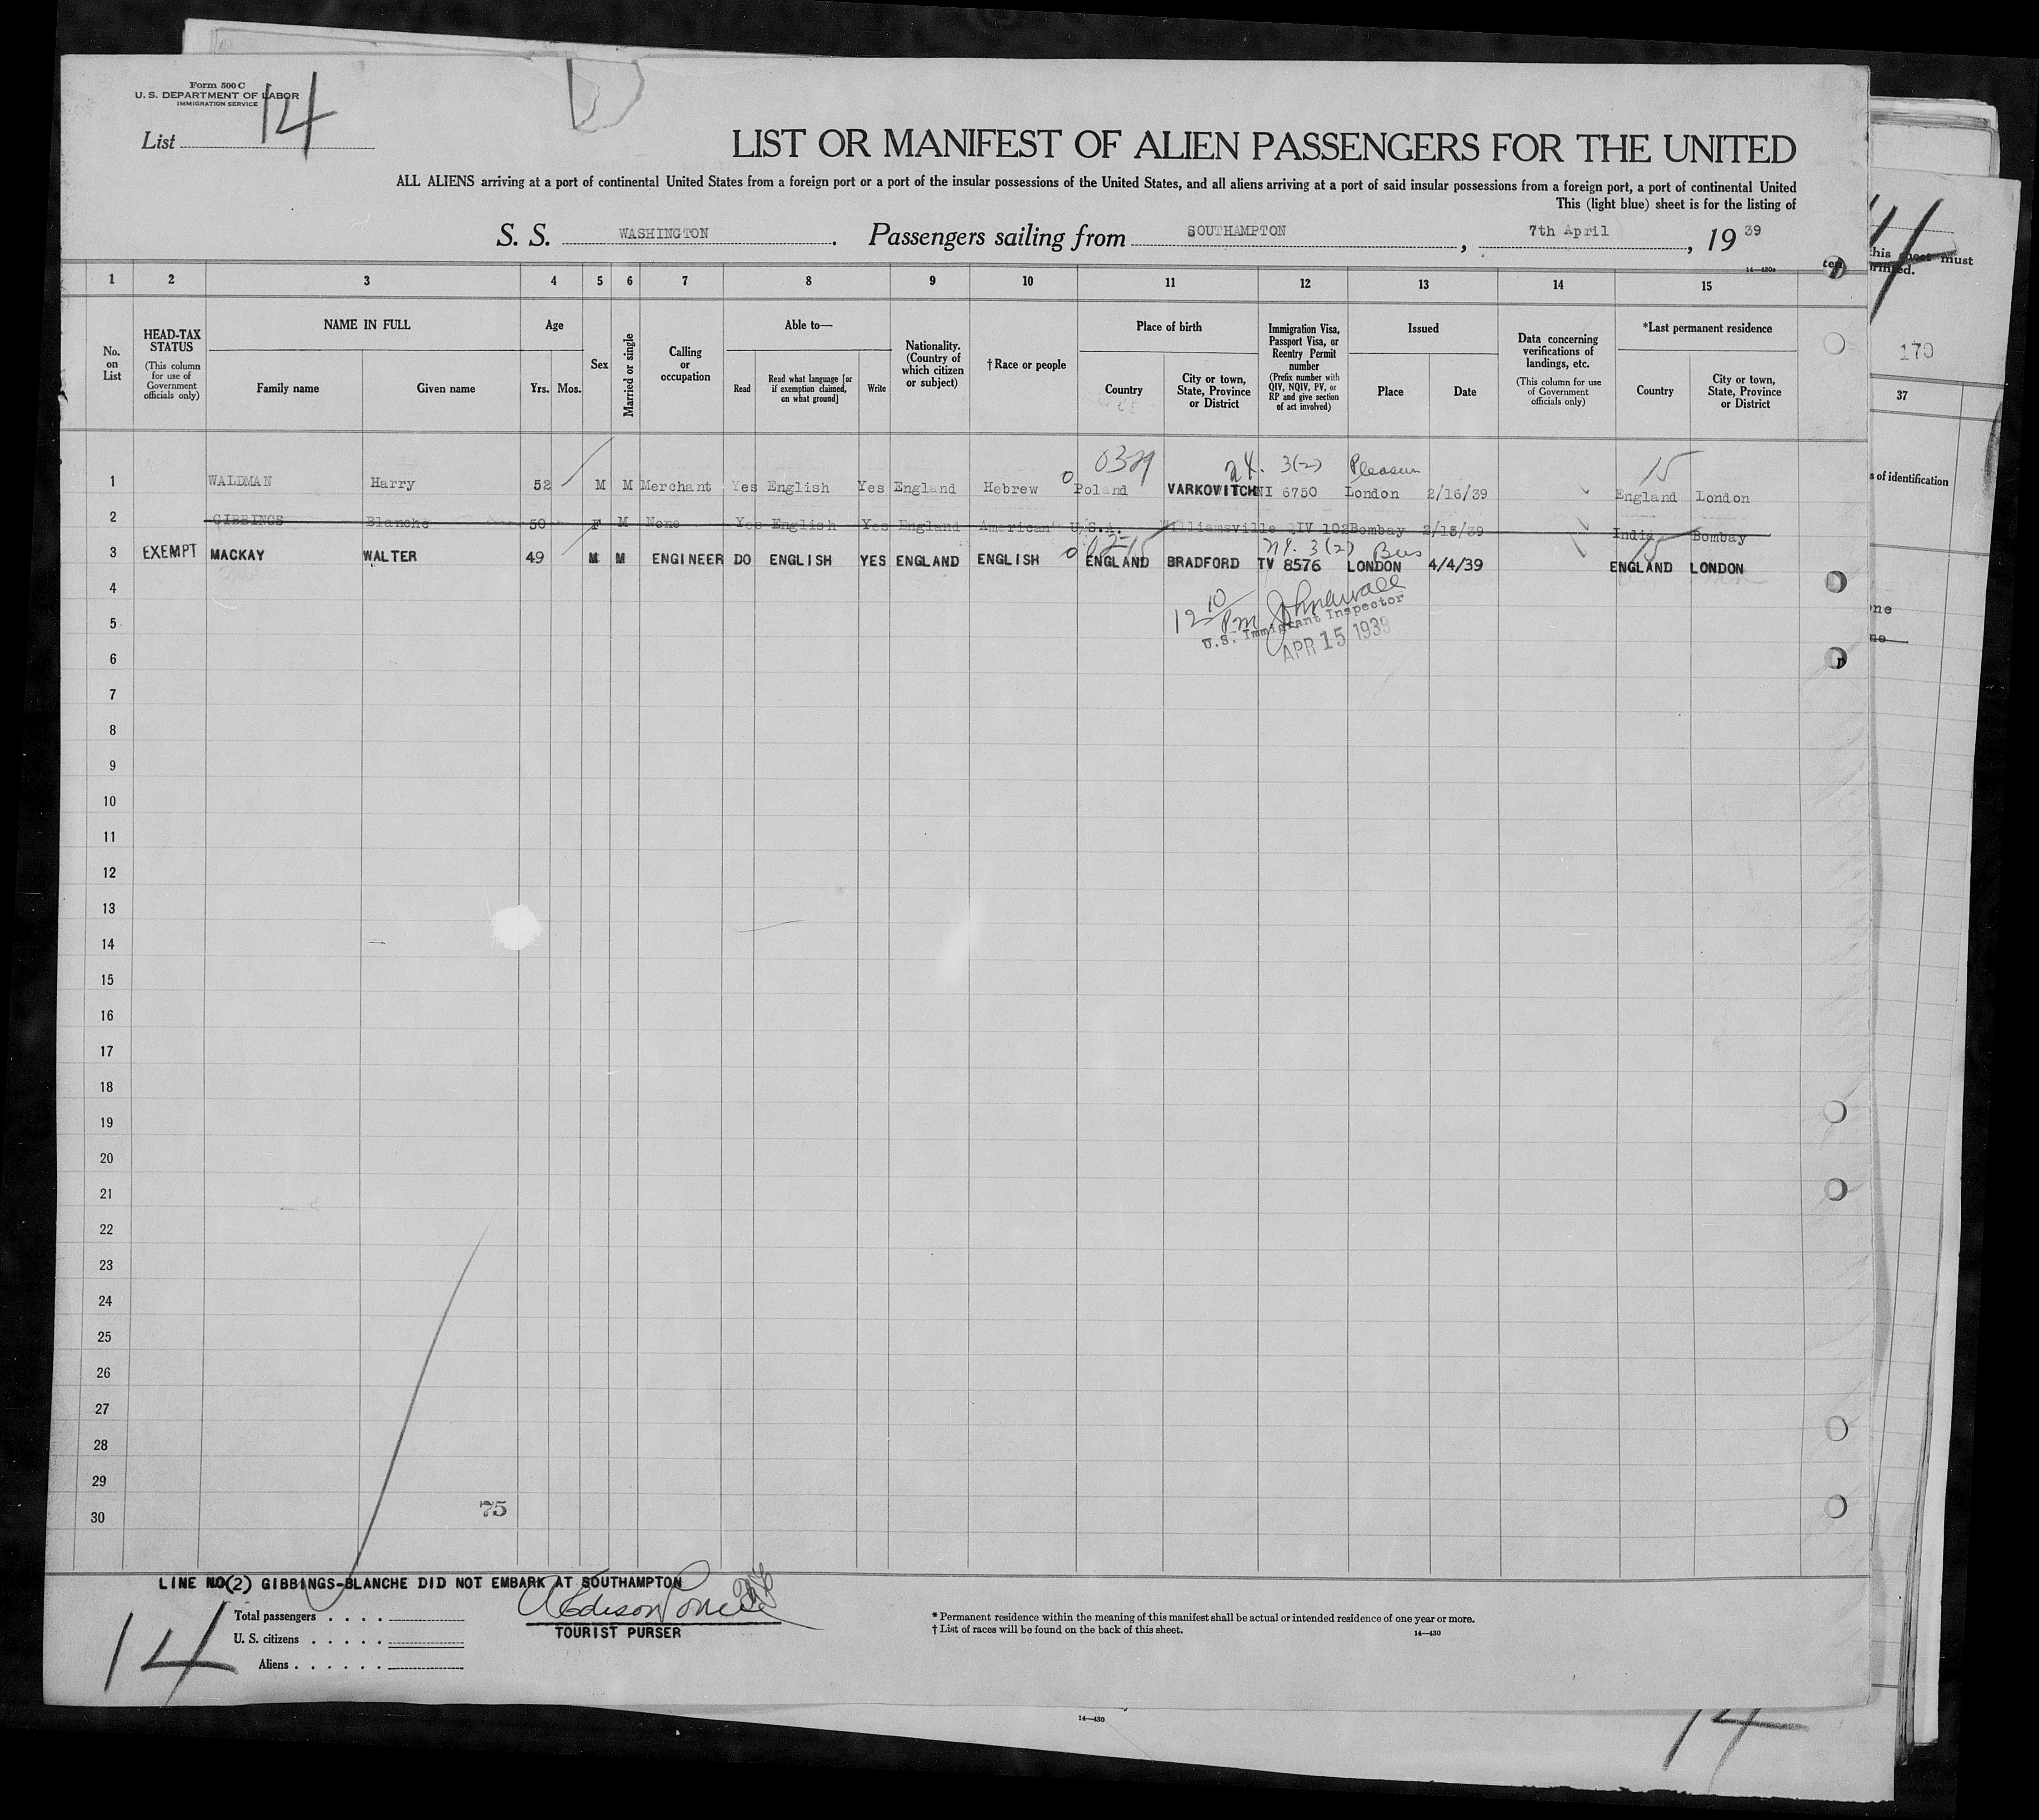 Form 500 C
U. S. DEPARTMENT OF LABOR
IMMIGRATION SERVICE
List 14
LIST OR MANIFEST OF ALIEN PASSENGERS FOR THE UNITED
ALL ALIENS arriving at a port of continental United States from a foreign port or a port of the insular possessions of the United States, and all aliens arriving at a port of said insular possessions from a foreign port, a port of continental United
This (light blue) sheet is for the listing of
S. S. WASHINGTON. Passengers sailing from SOUTHAMPTON, 7th April, 19 39
14—430c
1 2 3 4 5 6 7 8 9 10 11 12 13 14 15
No. on List
HEAD-TAX STATUS (This column for use of Government officials only)
NAME IN FULL Family name Given name
Age Yrs. Mos.
Sex
Married or single
Calling or occupation
Able to— Read Read what language [or if exemption claimed, on what ground] Write
Nationality. (Country of which citizen or subject)
†Race or people
Place of birth Country City or town, State, Province or District
Immigration Visa, Passport Visa, or Reentry Permit number (Prefix number with QIV, NQIV, PV, or RP and give section of act involved)
Issued Place Date
Data concerning verifications of landings, etc. (This column for use of Government officials only)
*Last permanent residence Country City or town, State, Province or District
3(2) Pleasure 15
1 WALDMAN Harry 52 M M Merchant Yes English Yes England Hebrew Poland VARKOVITCH NI 6750 London 2/16/39 England London
2 GIBBINGS Blanche 50 F M None Yes English Yes England American U.S.A. Williamsville QIV 102 Bombay 2/15/39 India Bombay
3(2) Bus 15
3 EXEMPT MACKAY WALTER 49 M M ENGINEER DO ENGLISH YES ENGLAND ENGLISH ENGLAND BRADFORD TV 8576 LONDON 4/4/39 ENGLAND LONDON
4
12 10 PM
5
U.S. Immigrant Inspector
APR 15 1939
6
7
8
9
10
11
12
13
14
15
16
17
18
19
20
21
22
23
24
25
26
27
28
29
75
30
LINE NO(2) GIBBINGS-BLANCHE DID NOT EMBARK AT SOUTHAMPTON
14
Total passengers . . . .
U. S. citizens . . . . .
Aliens . . . . . .
TOURIST PURSER
* Permanent residence within the meaning of this manifest shall be actual or intended residence of one year or more.
† List of races will be found on the back of this sheet.
14—430
this sheet must
170
37
s of identification
14—430
14